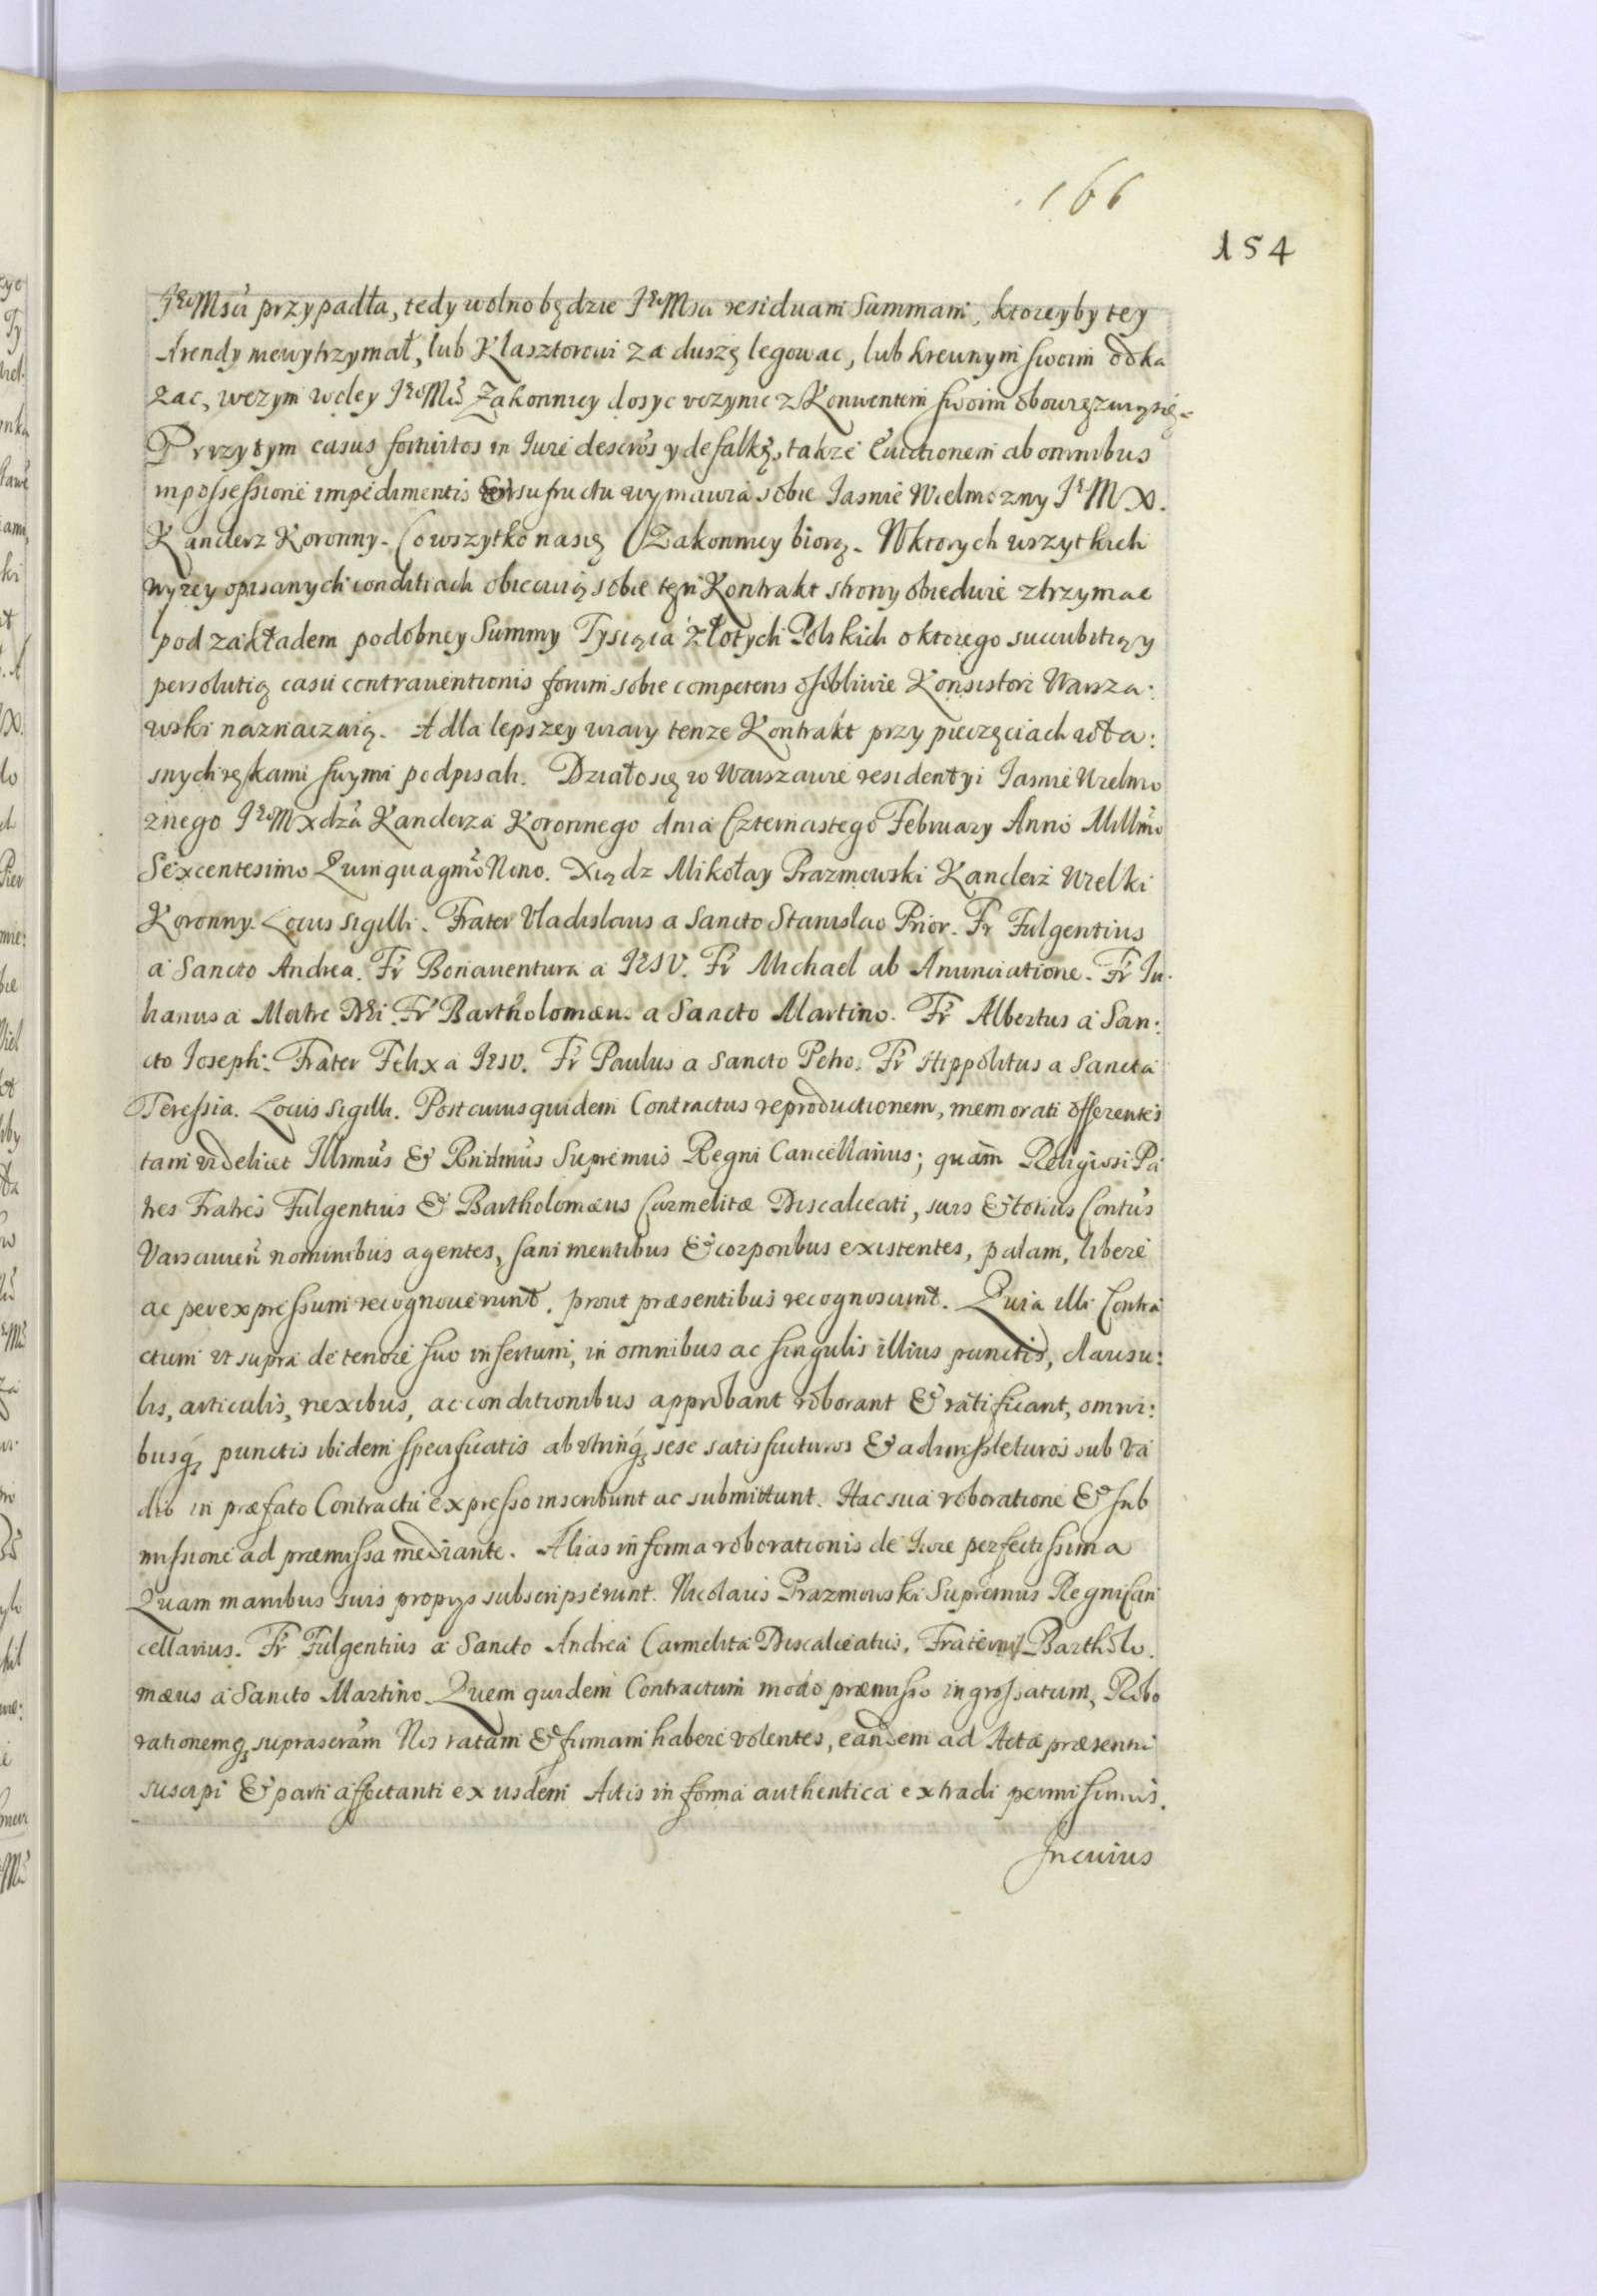 166
154
JeoMsci przypadła, tedy wolno będzie JeoMsci residuam Summam, ktoreyby tey
Arendy niewytrzymał, lub Klasztorowi za duszę legowac, lub krewnym swoim odka
zac, wczym woley JeoMci Zakonnicy dosyc vczynic z Konwentem swoim obowięzuią się.
Przytym casus fortuitos in Iure descros y defalkę, takze Euictionem ab omnibus
in possessione impedimentis & vsufructu wymawia sobie Iasnie Wielmozny Je M X.
Kanclerz Koronny. Co wszytko nasię Zakonnicy biorą. Wktorych wszytkich
wyzey opisanych conditiach obiecuią sobie ten Kontrakt strony obiedwie ztrzymac
pod zakładem podobney Summy Tysiąca złotych Polskich o ktorego succubitią y
persolutią casu contrauentionis forum sobie competens osobliwie Konsistorz Warsza:
wski naznaczaią. A dla lepszey wiary tenze Kontrakt przy pieczęciach wła:
snych rękami swymi podpisali. Działo się w Warszawie w residentyi Iasnie Wielmo
znego JeoMXdza Kanclerza Koronnego dnia Czternastego February Anno Millmo
Sexcentesimo Quinquagmo Nono. Xiądz Mikołay Prazmowski Kanclerz Wielki
Koronny. Locus sigilli. Frater Vladislaus a Sancto Stanislao Prior. Fr Fulgentius
a Sancto Andrea. Fr Bonauentura a IESV. Fr Michael ab Anunciatione. Fr Iu
lianus a Matre Dei. Fr Bartholomæus a Sancto Martino. Fr Albertus a San:
cto Ioseph. Frater Felix a Iesv. Fr Paulus a Sancto Petro. Fr Hippolitus a Sancta
Teressia. Locus Sigilli. Post cuius quidem Contractus reproductionem, memorati offerentes
tam videlicet Illmus & Rndmus Supremus Regni Cancellarius; quam Religiosi Pa
tres Fratres Fulgentius & Bartholomæus Carmelitæ Discalceati, suis & totius Contus
Varsauien nominibus agentes, sani mentibus & corporibus existentes, palam, libere
ac per expressum recognouerunt, prout præsentibus recognoscunt. Quia illi Contra
ctum vt supra de tenore suo insertum, in omnibus ac singulis illius punctis, clausu:
lis, articulis, nexibus, ac conditionibus approbant roborant & ratificant, omni:
busq, punctis ibidem specificatis ab vtrinq, sese satisfacturos & adimpleturos sub va
dio in præfato Contractu expresso inscribunt ac submittunt. Hac sua roboratione & sub
missione ad præmissa mediante. Alias in forma roborationis de Iure perfectissima
Quam manibus suis proprys subscripserunt. Nicolaus Prazmowski Supremus Regni Can
cellarius. Fr Fulgentius a Sancto Andrea Carmelita Discalceatus. Frater Bartholo.
mæus a Sancto Martino. Quem quidem Contractum modo præmisso ingrossatum, Robo
rationemq, suprascram Nos ratam & firmam habere volentes, eandem ad Acta præsentia
suscipi & parti affectanti ex iisdem Actis in forma authentica extradi permisimus.
In cuius